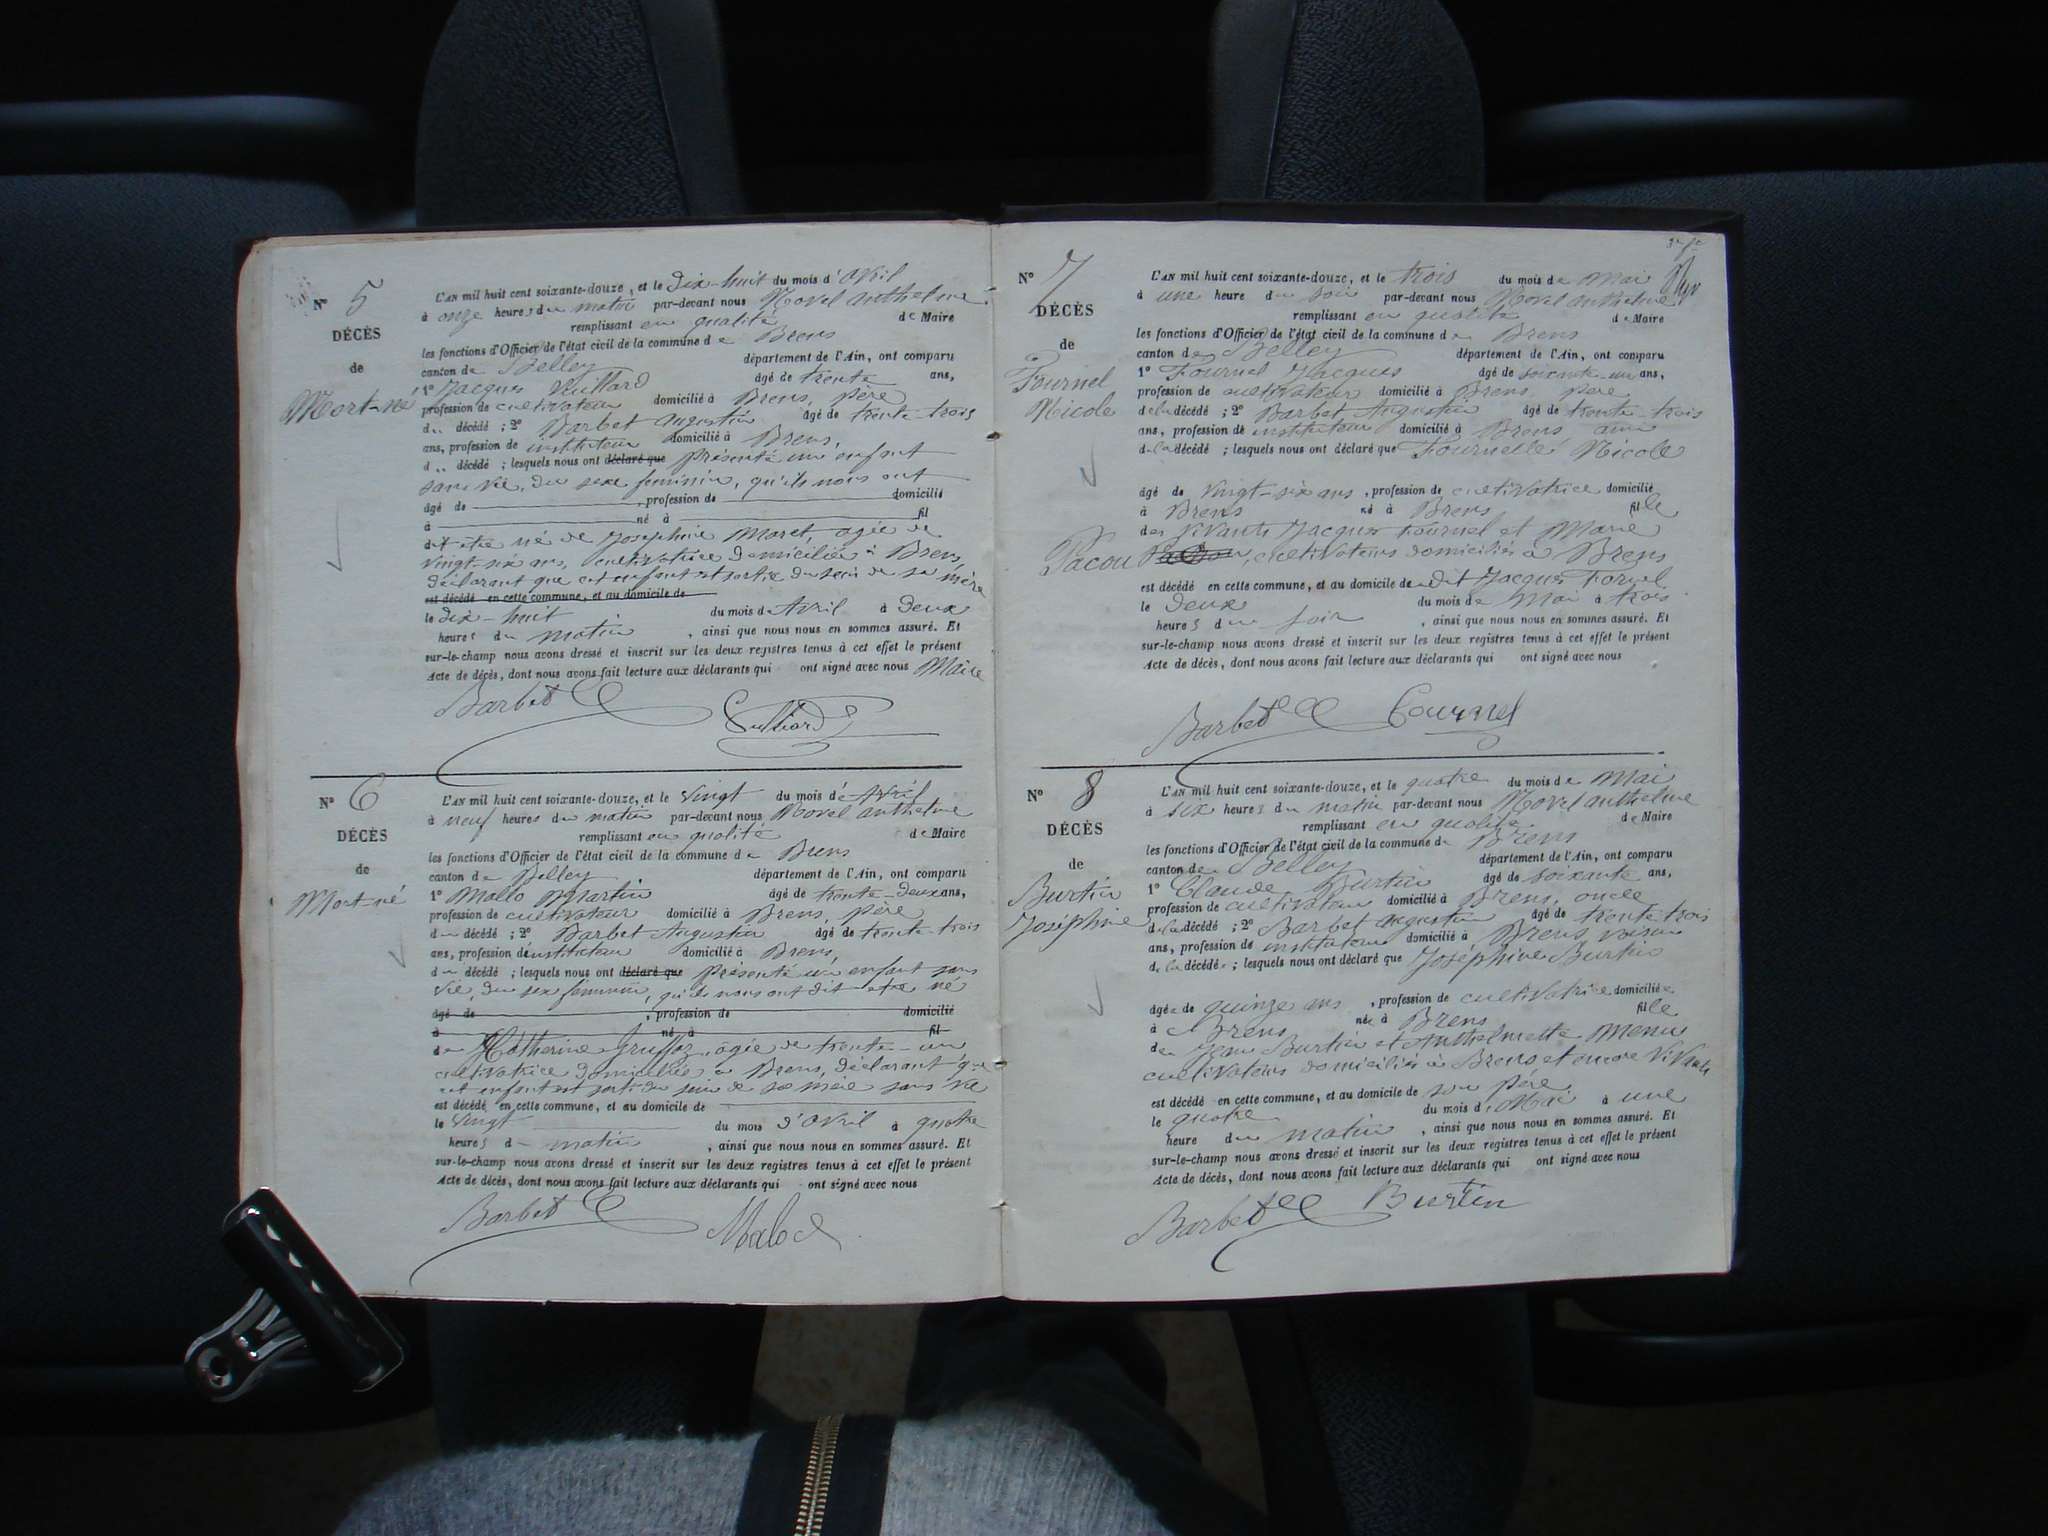 N° 5
DÉCÈS
de
Mort-né
L'AN mil huit cent soixante-douze, et le dix-huit du mois d'Avril
à onze heures du matin par-devant nous Novel Anthelme
remplissant en qualité de Maire
les fonctions d'Officier de l'état civil de la commune de Brens
canton de Belley département de l'Ain, ont comparu
1° Jacques âgé de trente ans,
profession de cultivateur domicilié à Brens, père
d décédé ; 2° Barbet Augustin âgé de trente-trois
ans, profession de instituteur domicilié à Brens,
d décédé ; lesquels nous ont déclaré que présenté un enfant
sans vie, du sexe féminin, qu'ils nous ont
âgé de , profession de domicilié
à né à fil
dit être né de Joséphine Moret, agée de
vingt-six ans, cultivatrice domiciliée à Brens,
déclarant que cet enfant est sortie du sein de sa mère
est décédé en cette commune, et au domicile de
le dix-huit du mois d'Avril à deux
heures du matin , ainsi que nous nous en sommes assuré. Et
sur-le-champ nous avons dressé et inscrit sur les deux registres tenus à cet effet le présent
Acte de décès, dont nous avons fait lecture aux déclarants qui ont signé avec nous Maire
Barbet
N° 6
DÉCÈS
de
Mort-né
L'AN mil huit cent soixante-douze, et le vingt du mois d'Avril
à neuf heures du matin par-devant nous Novel Anthelme
remplissant en qualité de Maire
les fonctions d'Officier de l'état civil de la commune de Brens
canton de Belley département de l'Ain, ont comparu
1° Mollo Martin âgé de trente-deux ans,
profession de cultivateur domicilié à Brens, père
du décédé ; 2° Barbet Augustin âgé de trente-trois
ans, profession d'instituteur domicilié à Brens,
du décédé ; lesquels nous ont déclaré que présenté un enfant sans
vie, du sexe féminin, qu'ils nous ont dit être né
âgé de , profession de domicilié
à né à fil
de Catherine agée de trente-un
cultivatrice domiciliée à Brens, déclarant que
cet enfant est sorti du sein de sa mère sans vie
est décédé en cette commune, et au domicile de
le vingt du mois d'Avril à quatre
heures d matin , ainsi que nous nous en sommes assuré. Et
sur-le-champ nous avons dressé et inscrit sur les deux registres tenus à cet effet le présent
Acte de décès, dont nous avons fait lecture aux déclarants qui ont signé avec nous
Barbet
N° 7
DÉCÈS
de
Fournel
Nicole
L'AN mil huit cent soixante-douze, et le trois du mois de Mai
à une heure du soir par-devant nous Novel Anthelme
remplissant en qualité de Maire
les fonctions d'Officier de l'état civil de la commune de Brens
canton de Belley département de l'Ain, ont comparu
1° Fournel Jacques âgé de soixante-un ans,
profession de cultivateur domicilié à Brens, père
de la décédé ; 2° Barbet Augustin âgé de trente-trois
ans, profession de instituteur domicilié à Brens ami
de la décédé ; lesquels nous ont déclaré que Fournelle Nicole
âgé de vingt-six ans , profession de cultivatrice domicilié
à Brens né à Brens fille
des vivants Jacques Fournel et Marie
Pacou , cultivateurs domiciliés à Brens
est décédé en cette commune, et au domicile de dit Jacques Fornel
le deux du mois de Mai à trois
heures du soir , ainsi que nous nous en sommes assuré. Et
sur-le-champ nous avons dressé et inscrit sur les deux registres tenus à cet effet le présent
Acte de décès, dont nous avons fait lecture aux déclarants qui ont signé avec nous
Barbet Fournel
N° 8
DÉCÈS
de
Burtin
Joséphine
L'AN mil huit cent soixante-douze, et le quatre du mois de Mai
à six heures du matin par-devant nous Novel Anthelme
remplissant en qualité de Maire
les fonctions d'Officier de l'état civil de la commune de Brens
canton de Belley département de l'Ain, ont comparu
1° Claude Burtin âgé de soixante ans,
profession de cultivateur domicilié à Brens, oncle
de la décédé ; 2° Barbet Augustin âgé de trente-trois
ans, profession de instituteur domicilié à Brens voisin
de la décédée ; lesquels nous ont déclaré que Joséphine Burtin
âgée de quinze ans , profession de cultivatrice domiciliée
à Brens née à Brens fille
de Jean Burtin et Anthelmette
cultivateurs domiciliés à Brens et encore vivants
est décédé en cette commune, et au domicile de son père
le quatre du mois de Mai à une
heure du matin , ainsi que nous nous en sommes assuré. Et
sur-le-champ nous avons dressé et inscrit sur les deux registres tenus à cet effet le présent
Acte de décès, dont nous avons fait lecture aux déclarants qui ont signé avec nous
Barbet Burtin